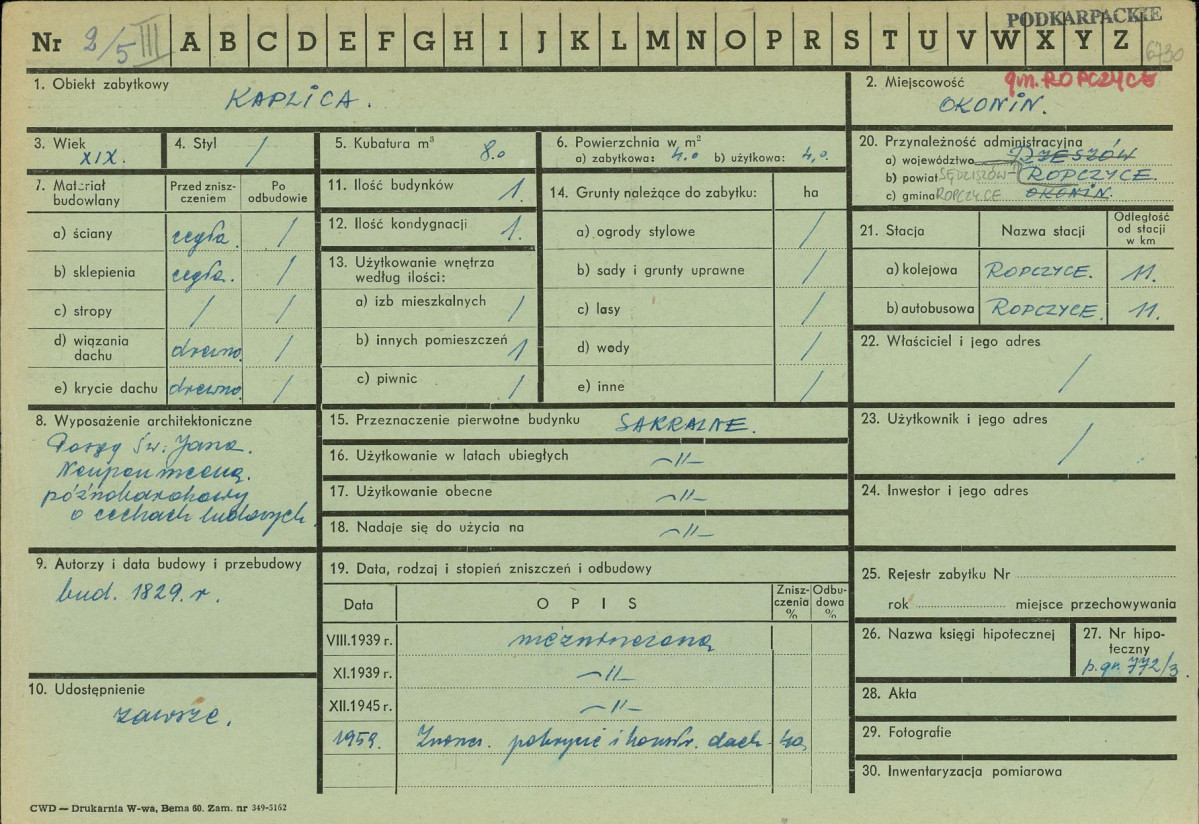 PODKARPACKIE
Nr 2/5 III A B C D E F G H I J K L M N O P R S T U V W X Y Z
6730
1. Obiekt zabytkowy
KAPLICA.
2. Miejscowość gm. ROPCZYCE
OKONIN.
3. Wiek
XIX.
4. Styl
/
5. Kubatura m³ 8.0
6. Powierzchnia w m²
a) zabytkowa: 4.0 b) użytkowa: 4,0.
20. Przynależność administracyjna
a) województwo RZESZÓW
b) powiat SĘDZISZÓW- ROPCZYCE.
c) gmina ROPCZYCE OKONIN.
7. Materiał budowlany
Przed znisz-
czeniem
Po
odbudowie
a) ściany cegła. /
b) sklepienia cegła. /
c) stropy / /
d) wiązania
dachu drewno. /
e) krycie dachu drewno. /
11. Ilość budynków 1.
12. Ilość kondygnacji 1.
13. Użytkowanie wnętrza
według ilości:
a) izb mieszkalnych /
b) innych pomieszczeń 1
c) piwnic /
14. Grunty należące do zabytku: ha
a) ogrody stylowe /
b) sady i grunty uprawne /
c) lasy /
d) wody /
e) inne /
21. Stacja Nazwa stacji
Odległość
od stacji
w km
a) kolejowa ROPCZYCE. 11.
b) autobusowa ROPCZYCE. 11.
22. Właściciel i jego adres
/
8. Wyposażenie architektoniczne
Posąg św. Jana.
późnobarokowy
o cechach ludowych.
15. Przeznaczenie pierwotne budynku SAKRALNE.
16. Użytkowanie w latach ubiegłych -//-
17. Użytkowanie obecne -//-
18. Nadaje się do użycia na -//-
23. Użytkownik i jego adres
/
24. Inwestor i jego adres
9. Autorzy i data budowy i przebudowy
bud. 1829. r.
10. Udostępnienie
zawsze.
19. Data, rodzaj i stopień zniszczeń i odbudowy
Data OPIS
Znisz-
czenia
%
Odbu-
dowa
%
VIII.1939 r. niezniszczona
XI.1939 r. -//-
XII.1945 r. -//-
1959. pokrycie i konstr. dach 40
25. Rejestr zabytku Nr
rok miejsce przechowywania
26. Nazwa księgi hipotecznej
27. Nr hipo-
teczny
p.gr. 772/3.
28. Akta
29. Fotografie
30. Inwentaryzacja pomiarowa
CWD — Drukarnia W-wa, Bema 60. Zam. nr 349-5162